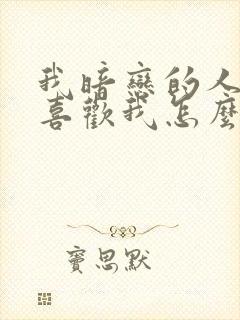 我暗戀的人
喜歡我怎麼
竇思默